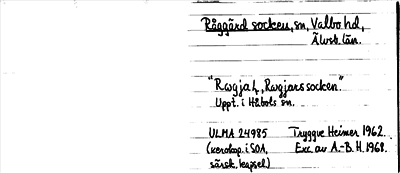 Råggärd socken, sn, Valbo hd,
Älvsb. län.
"Rωgjaḷ, Rωgjars socken."
Uppt. i Håbols sn.
ULMA 24985 Tryggve Heimer 1962.
(xerokop. i SOA, Exc. av A.-B. H. 1968.
särsk. kapsel)